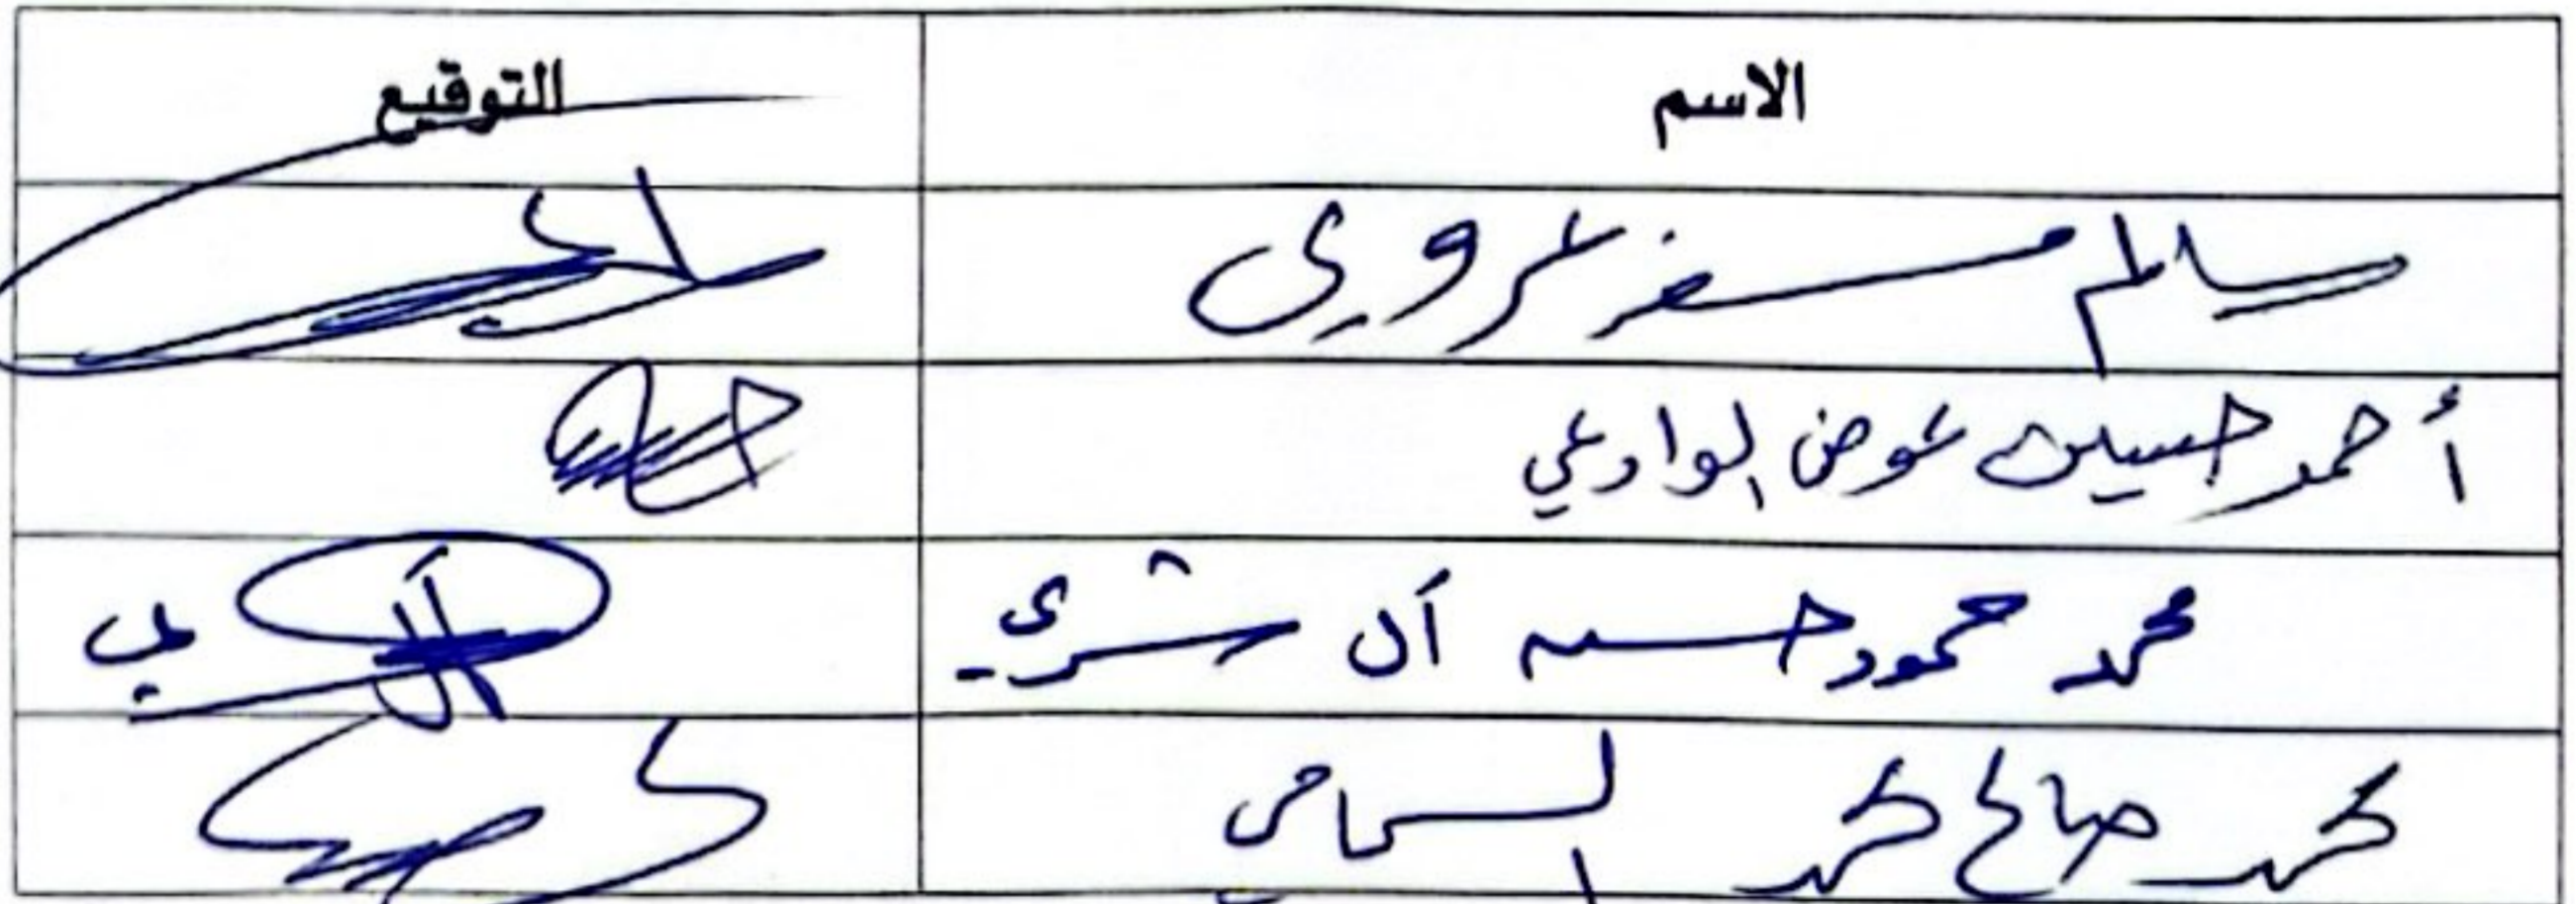 الاسم التوقيع
سالم مسفر غروي
أحمد حسين عوض الوادعي
محمد محمود حسن آل شري
محمد صالح محمد